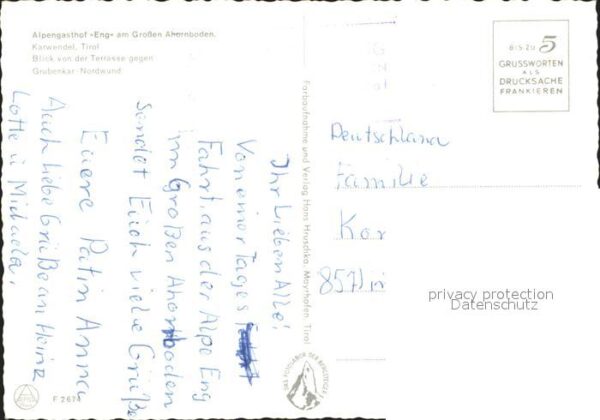 Alpengasthof «Eng» am Großen Ahornboden.
Karwendel, Tirol
Blick von der Terrasse gegen
Grubenkar-Nordwand
Ihr Lieben Alle!
Von einer Tages
Fahrt aus der Alpe Eng
im Großen Ahornboden
sendet Euch viele Grüße
Euere Patin Anna
Auch liebe Grüße an Heinz
Lotte u Michaela,
F 2674
Farbaufnahme und Verlag Hans Hruschka, Mayrhofen, Tirol
BIS ZU 5
GRUSSWORTEN
ALS
DRUCKSACHE
FRANKIEREN
Deutschland
Familie
Kar
857
privacy protection
Datenschutz